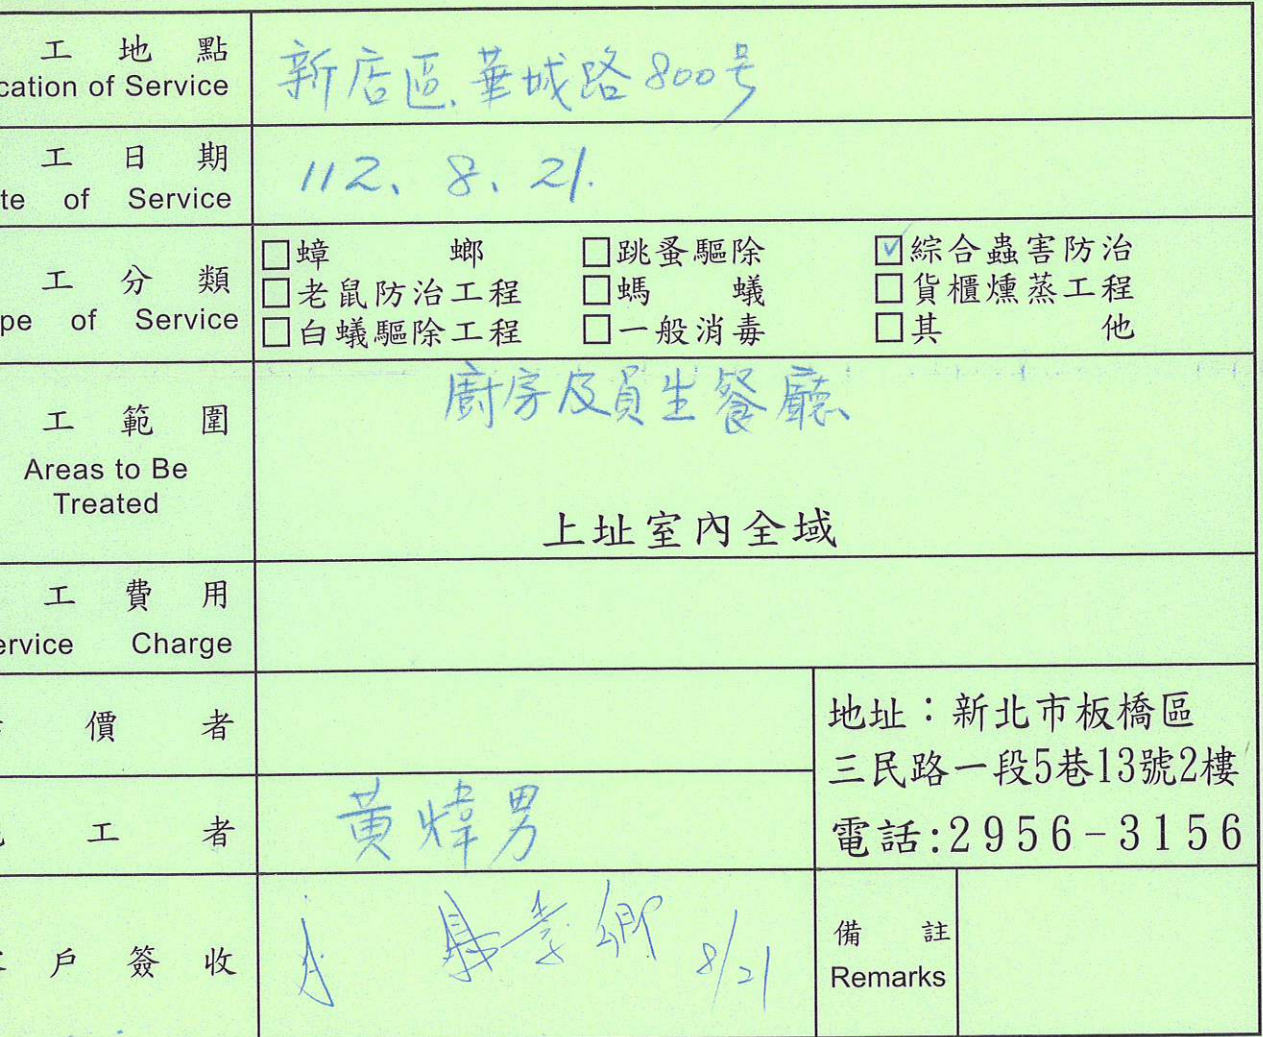 工地點
cation of Service
新店區.華城路800号
工日期
te of Service
112、8、21.
工分類
pe of Service
□蟑螂
□跳蚤驅除
☑綜合蟲害防治
□老鼠防治工程
□螞蟻
□貨櫃燻蒸工程
□白蟻驅除工程
□一般消毒
□其他
工範圍
Areas to Be
Treated
廚房及員生餐廳、
上址室內全域
工費用
ervice Charge
價者
地址：新北市板橋區
三民路一段5巷13號2樓
電話:2956-3156
工者
黃煒男
戶簽收
8/21
備註
Remarks